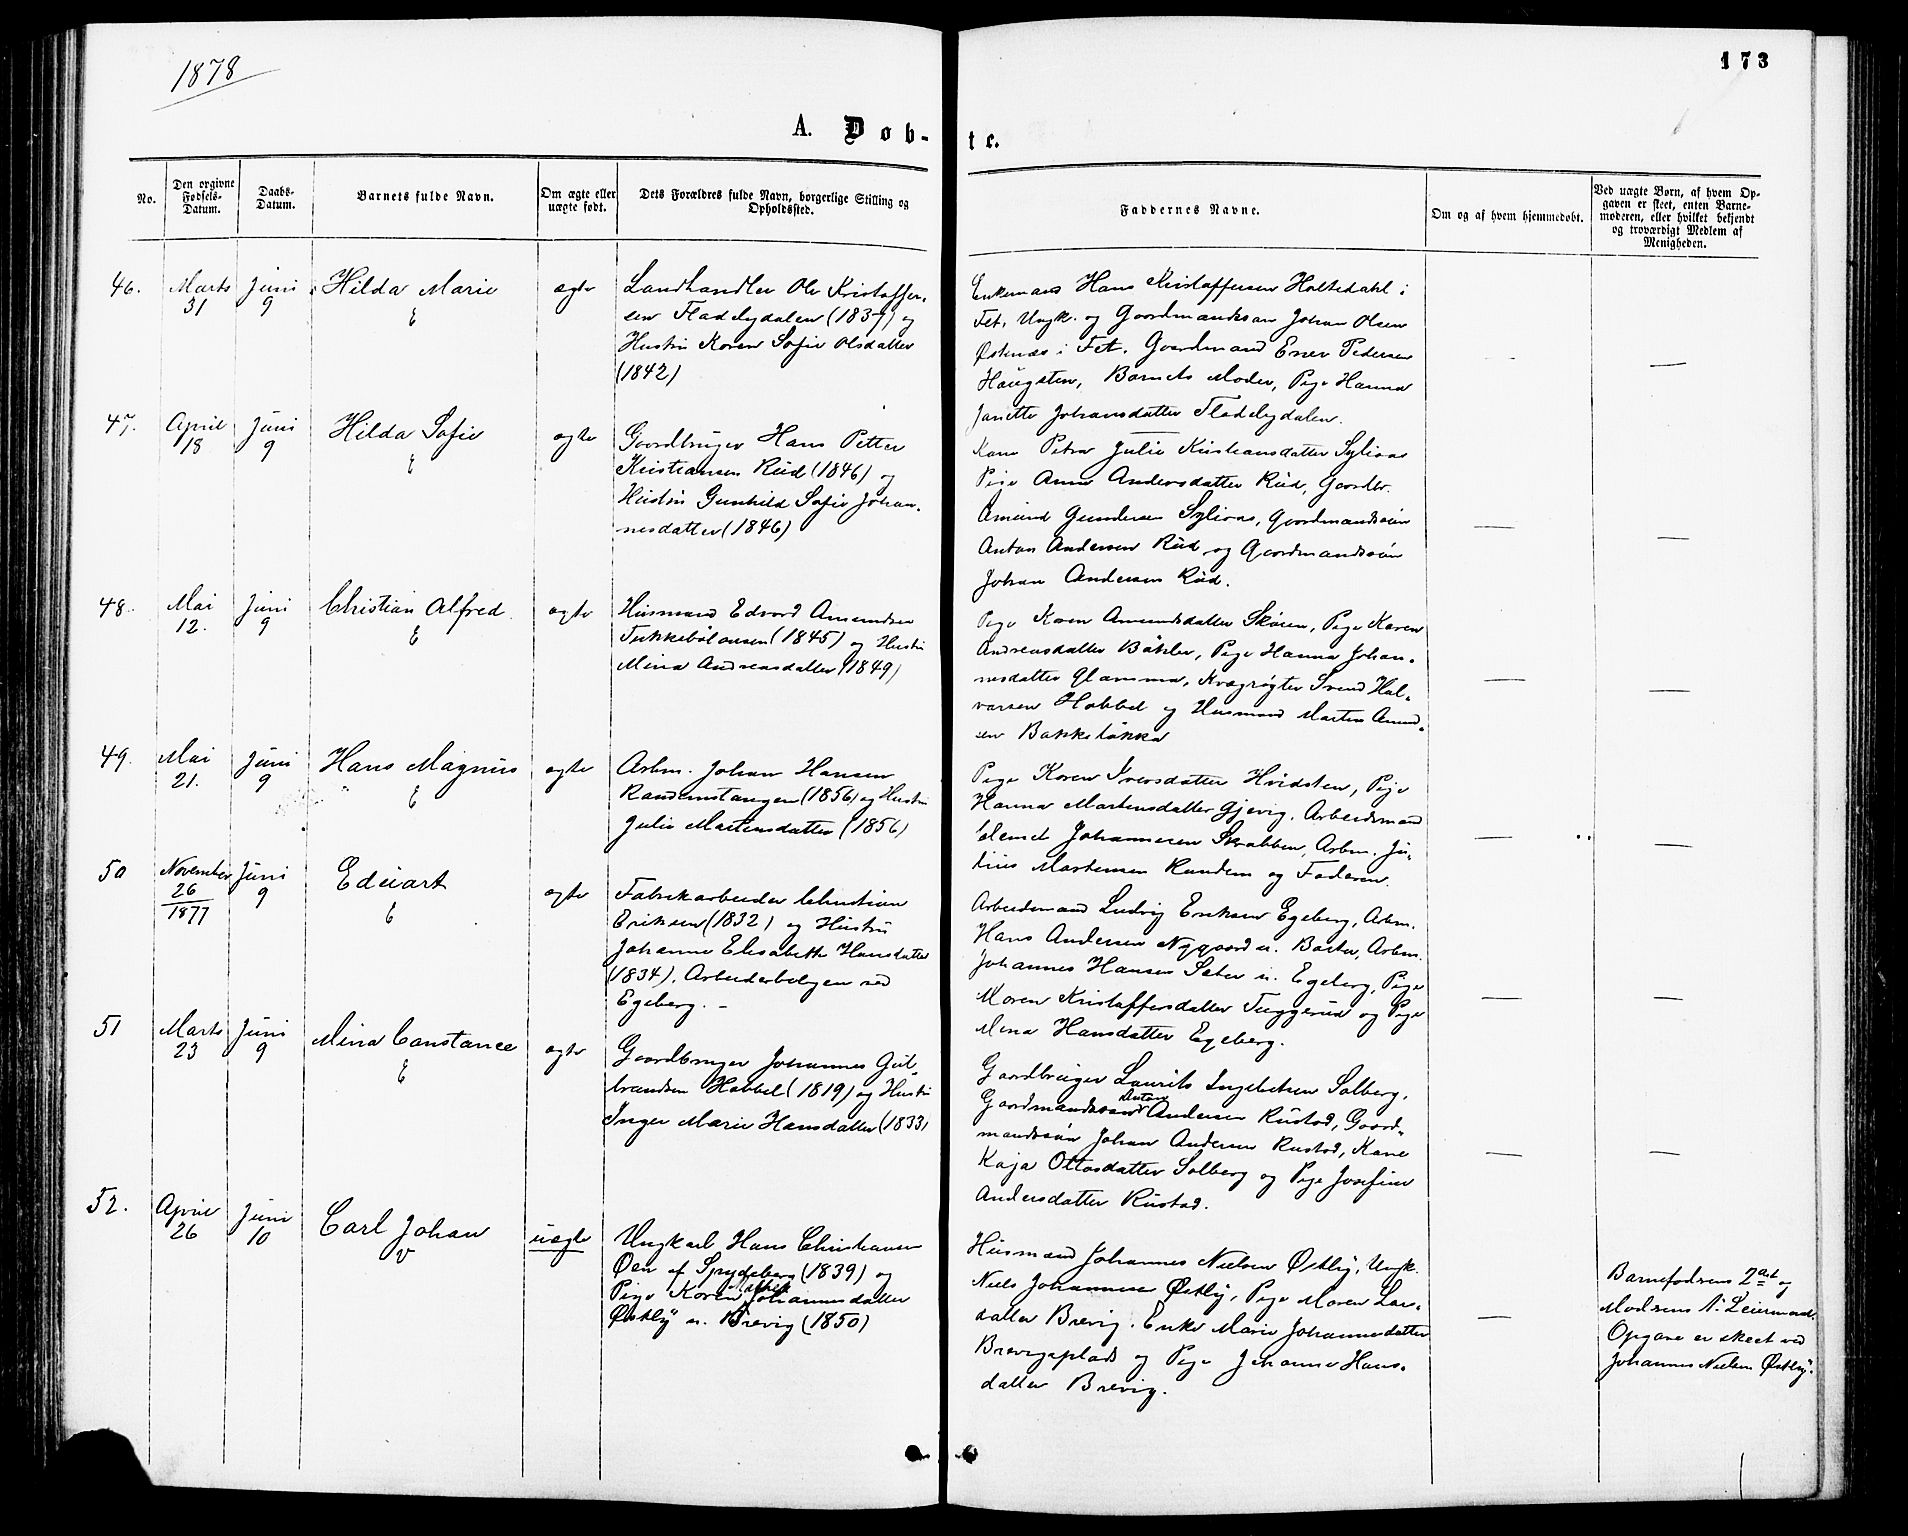 1878
173
A. Døb-
te.
No.
Den opgivne Fødsels-Datum.
Daabs-Datum.
Barnets fulde Navn.
Om ægte eller uægte født.
Dets Forældres fulde Navn, borgerlige Stilling og Opholdssted.
Faddernes Navne.
Om og af hvem hjemmedøbt.
Ved uægte Børn, af hvem Opgaven er skeet, enten Barnemoderen, eller hvilket bekjendt og troværdigt Medlem af Menigheden.
46.
Marts 31
Juni 9
Hilda Marie
E
ægte
Landhandler Ole Kristoffer-
sen Fladebydalen (1837) og
Hustru Karen Sofie Olsdatter
(1842)
Enkemand Hans Kristoffersen Holtedahl i
Fet, Ungk. og Gaardmandssøn Johan Olsen
Østenæs i Fet. Gaardmand Ener Pedersen
Haugsten, Barnets Moder, Pige Hanna
Janette Johansdatter Fladebydalen.
—
—
47.
April 18
Juni 9
Hilda Sofie
E
ægte
Gaardbruger Hans Petter
Kristiansen Rud (1846) og
Hustru Gunhild Sofie Johan-
nesdatter (1846)
Kone Petra Julie Kristiansdatter Sylivas
Pige Anne Andersdatter Rud, Gaardbr.
Amund Gundersen Sylivas, Gaardmandssøn
Anton Andersen Rud og Gaardmandssøn
Johan Andersen Rud.
—
—
48.
Mai 12.
Juni 9
Christian Alfred
E
ægte
Husmand Edvard Amundsen
(1845) og Hustru
Mina Andreasdatter (1849)
Pige Karen Amundsdatter Skåren, Pige Karen
Andreasdatter Bøhler, Pige Hanna Johan-
nesdatter Glamma, Kvægrøgter Svend Hal-
varsen Hobbel og Husmand Martin Amund-
sen Bakkeløkka
—
—
49.
Mai 21.
Juni 9
Hans Magnus
E
ægte
Arbm. Johan Hansen
Randemstangen (1856) og Hustru
Julie Martensdatter (1856)
Pige Karen Iversdatter Hvidsten, Pige
Hanna Martensdatter Gjevig, Arbeidsmand
Clemet Johannesen Skrabben, Arbm. Ju-
lius Martensen Randem og Faderen.
—
—
50
November 26 1877
Juni 9
Eduart
E
ægte
Fabrikarbeider Christian
Eriksen (1832) og Hustru
Johanne Elisabeth Hansdatter
(1834). Arbeiderboligen ved
Egeberg. –
Arbeidsmand Ludvig Eriksen Egeberg, Arbm.
Hans Andersen Nygaard u. Baster, Arbm.
Johannes Hansen Sæter u. Egeberg, Pige
Maren Kristoffersdatter Tuggerud og Pige
Mina Hansdatter Egeberg.
—
—
51
Marts 23
Juni 9
Mina Constance
E
ægte
Gaardbruger Johannes Gul-
brandsen Hobbel (1819) og Hustru
Inger Marie Hansdatter (1833)
Gaardbruger Laurits Ingebretsen Solberg,
Gaardmandssøn Anton Andersen Rustad, Gaard-
mandssøn Johan Andersen Rustad, Kone
Kaja Ottosdatter Solberg og Pige Josefine
Andersdatter Rustad.
—
—
52.
April 26
Juni 10
Carl Johan
V
uægte
Ungkarl Hans Christiansen
Øen af Spydeberg (1839) og
Pige Karen Johannesdatter
Østby u. Brevig (1850)
Husmand Johannes Nielsen Østby, Ungk.
Niels Johannesen Østby, Pige Maren Lars-
datter Brevig. Enke Marie Johannesdatter
Brevigsplads og Pige Johanne Hans-
datter Brevig.
—
Barnefadrens 2det og
Modrens 1ste Leiermaal.
Opgave er skeet ved
Johannes Nielsen Østby.